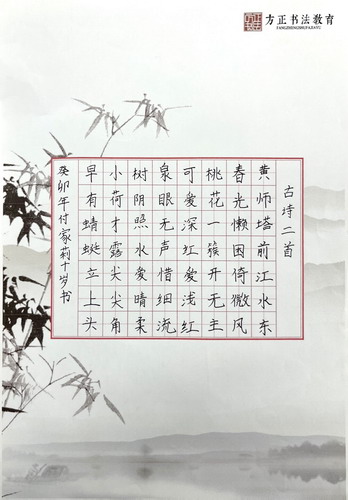 方正书法教育
FANGZHENGSHUFAJIAOYU
古诗二首
黄师塔前江水东
春光懒困倚微风
桃花一簇开无主
可爱深红爱浅红
泉眼无声惜细流
树阴照水爱晴柔
小荷才露尖尖角
早有蜻蜓立上头
癸卯年付家莉十岁书